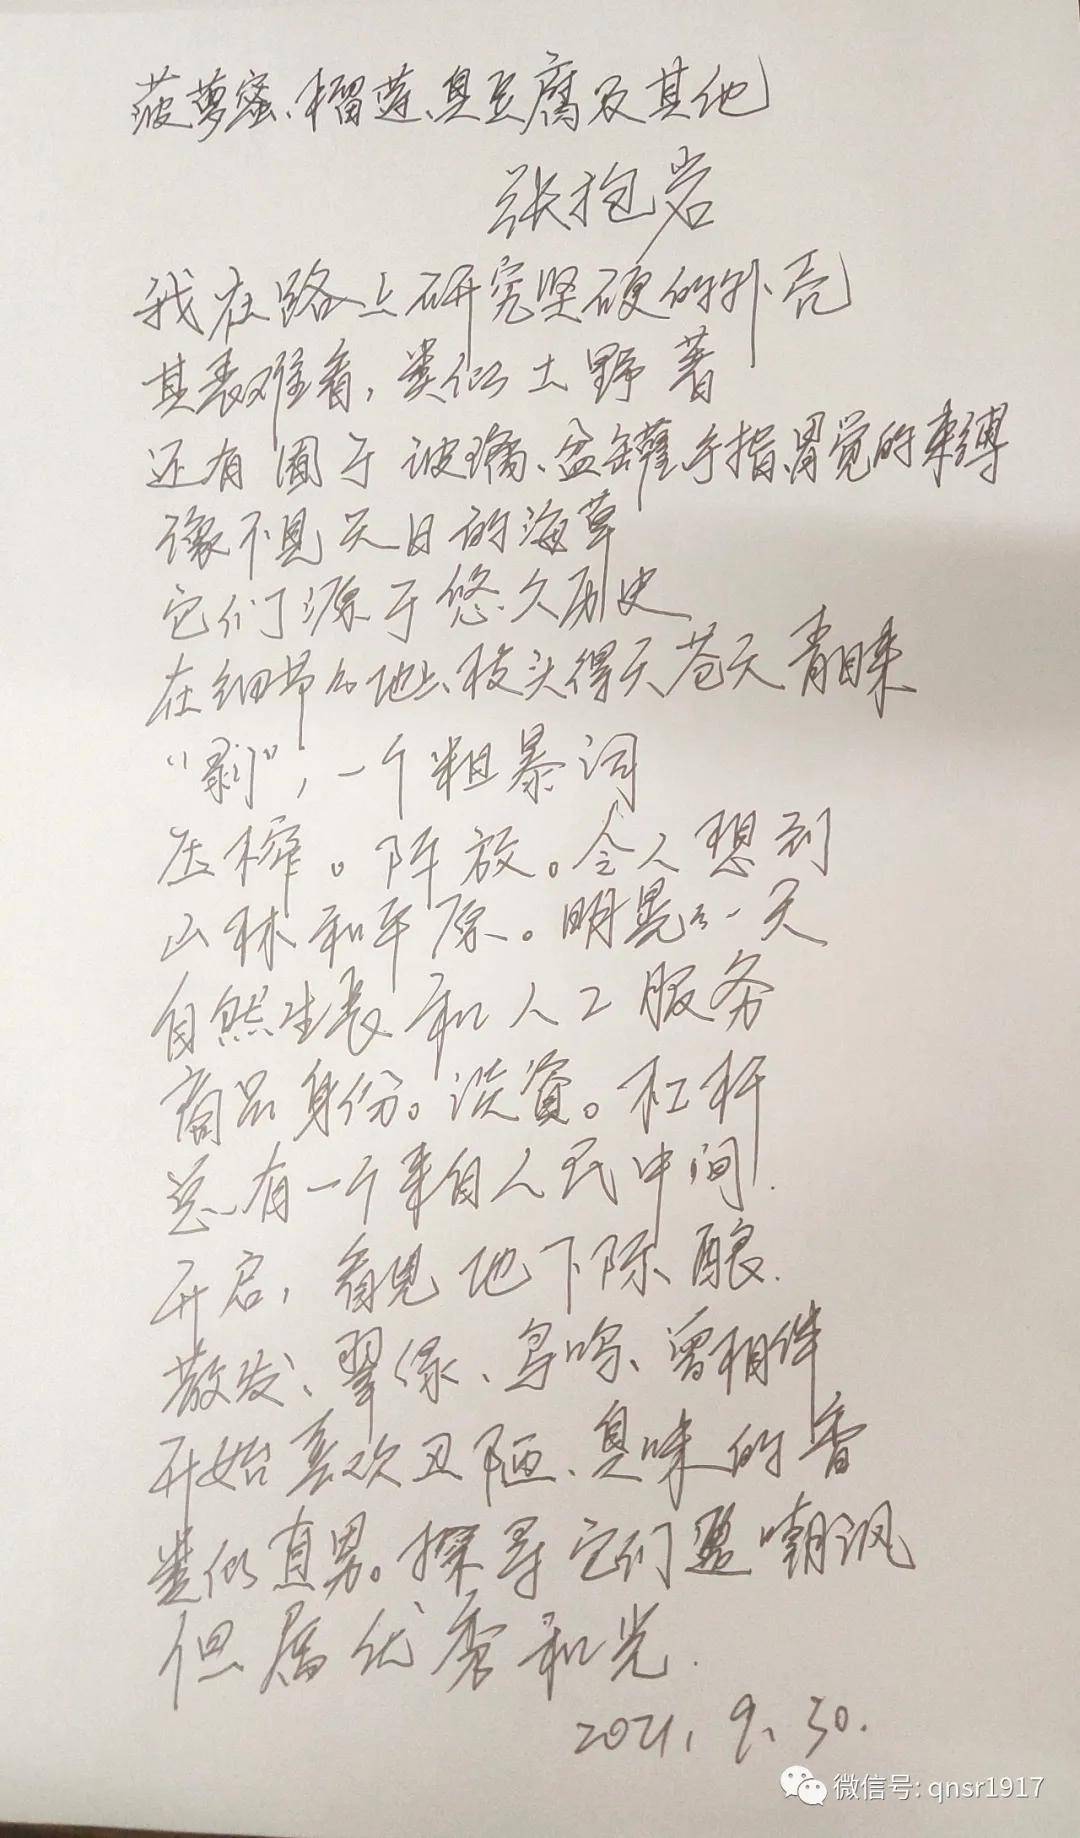 菠萝蜜、榴莲、臭豆腐及其他
张抱岩
我在路上研究坚硬的外壳
其表难看，类似土野著
还有囿于玻璃、盆罐手指胃觉的束缚
像不见天日的海草
它们源于悠久历史
在细节的地上、枝头得天苍天青睐
“剥”，一个粗暴词
压榨。阵放。令人想到
山林和平原。明晃的一天
自然生长和人工服务
商品身份。谈资。杠杆
总有一个来自人民中间.
开启，看见地下陈酿.
散发、翠绿、鸟鸣、曾相伴
开始喜欢丑陋、臭味的香
类似直男。探寻它们遭嘲讽
但属优秀和光.
2021.9.30.
微信号: qnsr1917